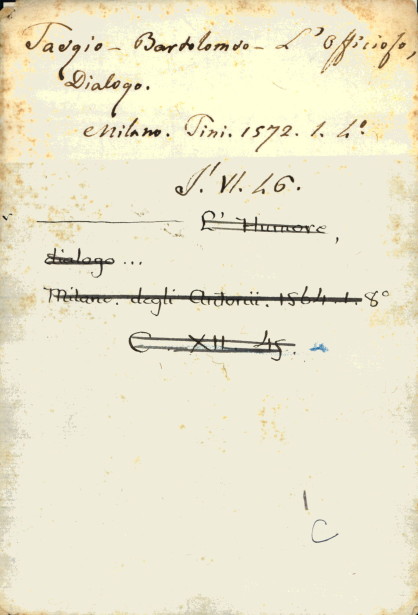 Taegio - Bartolomeo - L'Officioso,
Dialogo.
Milano. Tini. 1572. 1. 4.°
S. VI. 46.
L'Humore,
dialogo ...
Milano. degli Antonii. 1564. 1. 8°
C XII 45.
1
C